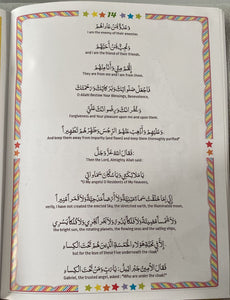 14
وَعَدُوٌّ لِمَنْ عَادَاهُمْ
I am the enemy of their enemies
وَمُحِبٌّ لِمَنْ أَحَبَّهُمْ
and I am the friend of their friends.
إِنَّهُمْ مِنِّي وَأَنَا مِنْهُمْ
They are from me and I am from them.
فَاجْعَلْ صَلَوَاتِكَ وَبَرَكَاتِكَ وَرَحْمَتَكَ
O Allah! Bestow Your Blessings, Benevolence,
وَغُفْرَانَكَ وَرِضْوَانَكَ عَلَيَّ
Forgiveness and Your pleasure upon me and upon them.
وَعَلَيْهِمْ وَأَذْهِبْ عَنْهُمُ الرِّجْسَ وَطَهِّرْهُمْ تَطْهِيراً
And keep them away from impurity (and flaws) and keep them thoroughly purified"
فَقَالَ اللهُ عَزَّ وَجَلَّ
Then the Lord, Almighty Allah said:
يَا مَلَائِكَتِي وَيَا سُكَّانَ سَمَاوَاتِي
"O My angels! O Residents of My Heavens,
إِنِّي مَا خَلَقْتُ سَمَاءً مَبْنِيَّةً وَلَا أَرْضاً مَدْحِيَّةً وَلَا قَمَراً مُنِيراً
verily, I have not created the erected Sky, the stretched earth, the illuminated moon,
وَلَا شَمْساً مُضِيئَةً وَلَا فَلَكاً يَدُورُ وَلَا بَحْراً يَجْرِي وَلَا فُلْكاً يَسْرِي
the bright sun, the rotating planets, the flowing seas and the sailing ships,
إِلَّا فِي مَحَبَّةِ هَؤُلَاءِ الْخَمْسَةِ الَّذِينَ هُمْ تَحْتَ الْكِسَاءِ
but for the love of these Five underneath the cloak"
فَقَالَ الْأَمِينُ جَبْرَائِيلُ: يَا رَبِّ وَمَنْ تَحْتَ الْكِسَاءِ
Gabriel, the trusted angel, asked : "Who are under the cloak?"